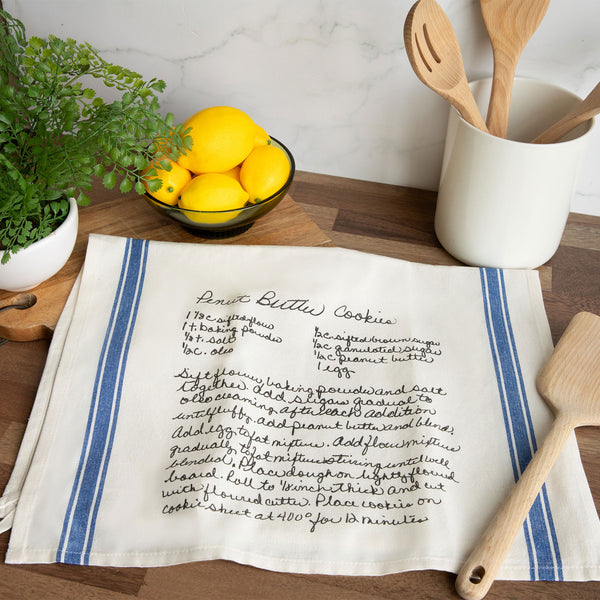 Peanut Butter Cookies
1 1/2 c sifted flour
1 t. baking powder
1/8 t. salt
1/2 c. oleo
1/2 c sifted brown sugar
1/2 c granulated sugar
1/2 c peanut butter
1 egg
Sift flour, baking powder and salt
together. add sugars gradual to
oleo creaming after each addition
until fluffy. add peanut butter and blend,
Add egg to fat mixture. Add flour mixture
gradually to fat mixture stirring until well
blended. Place dough on lightly floured
board. Roll to 1/8 inch thick and cut
with floured cutter. Place cookies on
cookie sheet at 400° for 12 minutes